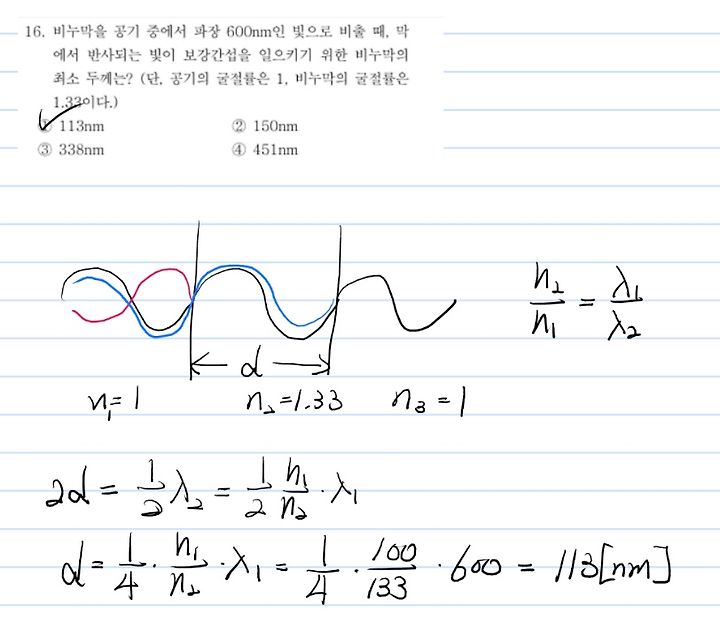 16. 비누막을 공기 중에서 파장 600nm인 빛으로 비출 때, 막
에서 반사되는 빛이 보강간섭을 일으키기 위한 비누막의
최소 두께는? (단, 공기의 굴절률은 1, 비누막의 굴절률은
1.33이다.)
① 113nm ② 150nm
③ 338nm ④ 451nm
n₂/n₁ = λ₁/λ₂
d
n₁=1 n₂=1.33 n₃=1
2d = 1/2 λ₂ = 1/2 n₁/n₂ · λ₁
d = 1/4 · n₁/n₂ · λ₁ = 1/4 · 100/133 · 600 = 113[nm]